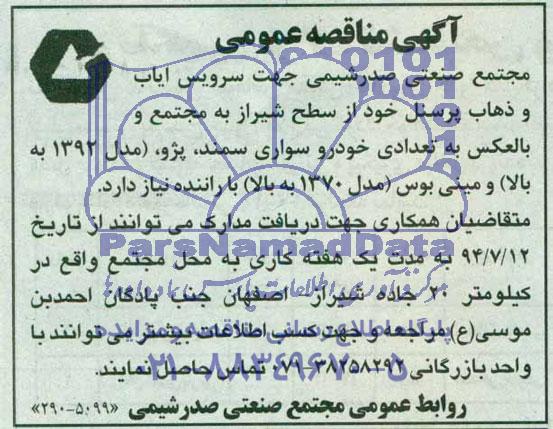 آگهی مناقصه عمومی
مجتمع صنعتی صدرشیمی جهت سرویس ایاب
و ذهاب پرسنل خود از سطح شیراز به مجتمع و
بالعکس به تعدادی خودرو سواری سمند، پژو، (مدل ۱۳۹۲ به
بالا) و مینی بوس (مدل ۱۳۷۰ به بالا) با راننده نیاز دارد.
متقاضیان همکاری جهت دریافت مدارک می توانند از تاریخ
ParsNamadData
۹۴/۷/۱۲ به مدت یک هفته کاری به محل مجتمع واقع در
کیلومتر ۲۰ جاده شیراز - اصفهان جنب پادگان احمدبن
موسی(ع) مراجعه و جهت کسب اطلاعات بیشتر می توانند با
واحد بازرگانی ۳۸۲۵۸۲۹۲-۰۷۱ تماس حاصل نمایند.
۰۲۱-۸۸۳۴۹۶۷۰-۵
روابط عمومی مجتمع صنعتی صدرشیمی «۵۰۹۹-۲۹۰»